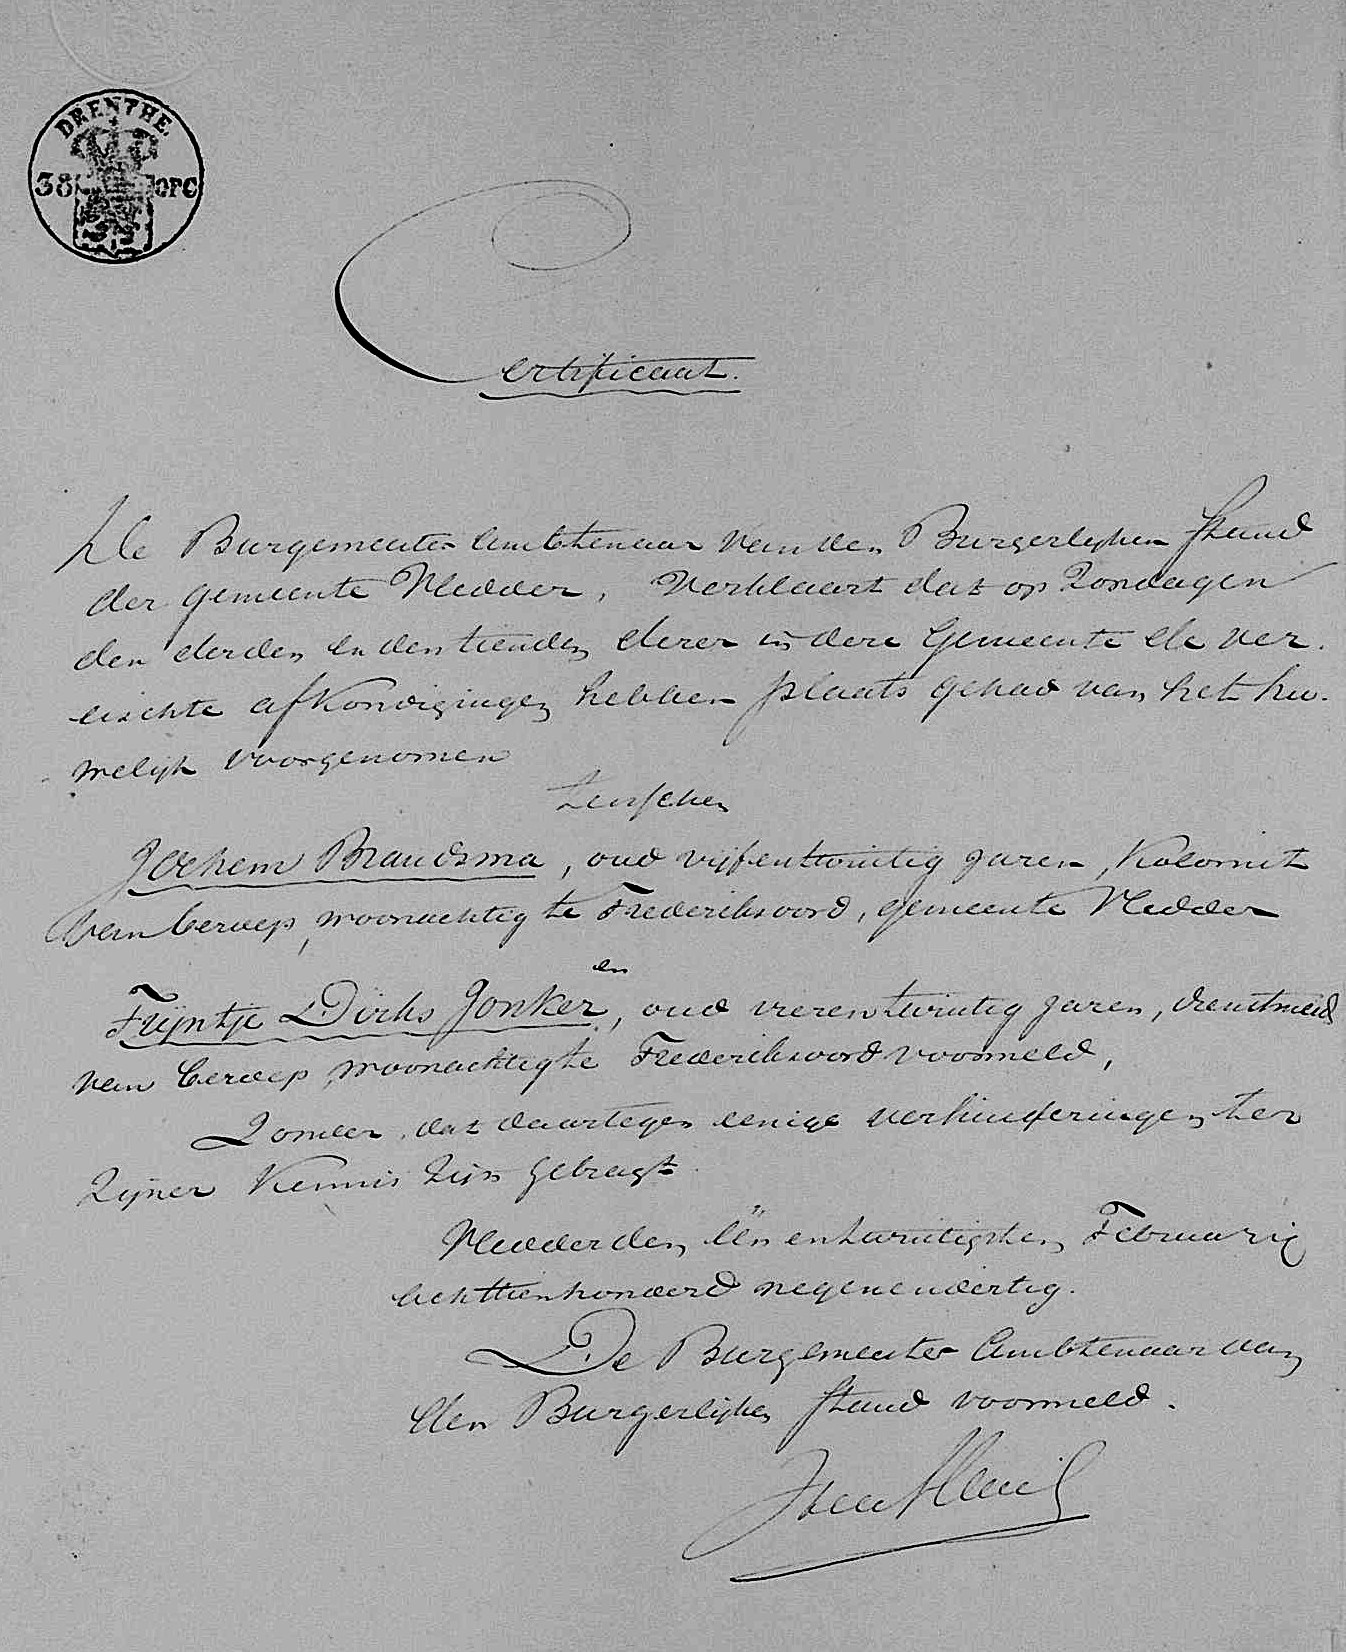 DRENTHE
38 OPC
Certificaat.
De Burgemeester Ambtenaar van den Burgerlyken Stand
der gemeente Vledder, Verklaart dat op Zondagen
den derden en den tienden dezer in deze Gemeente de ver-
eischte afkondigingen hebben plaats gehad van het hu-
welyk voorgenomen
tusschen
Jochem Brandsma, oud vijfentwintig jaren, Kolonist
van beroep, woonachtig te Frederiksoord, gemeente Vledder
en
Trijntje Dirks Jonker, oud vierentwintig jaren, dienstmeid
van beroep, woonachtig te Frederiksoord voormeld,
Zonder dat daartegen eenige verhinderingen ter
zijner Kennis zijn gebragt.
Vledder den één entwintigsten Februarij
achttienhonderd negenendertig.
De Burgemeester Ambtenaar van
den Burgerlijken Stand voormeld.